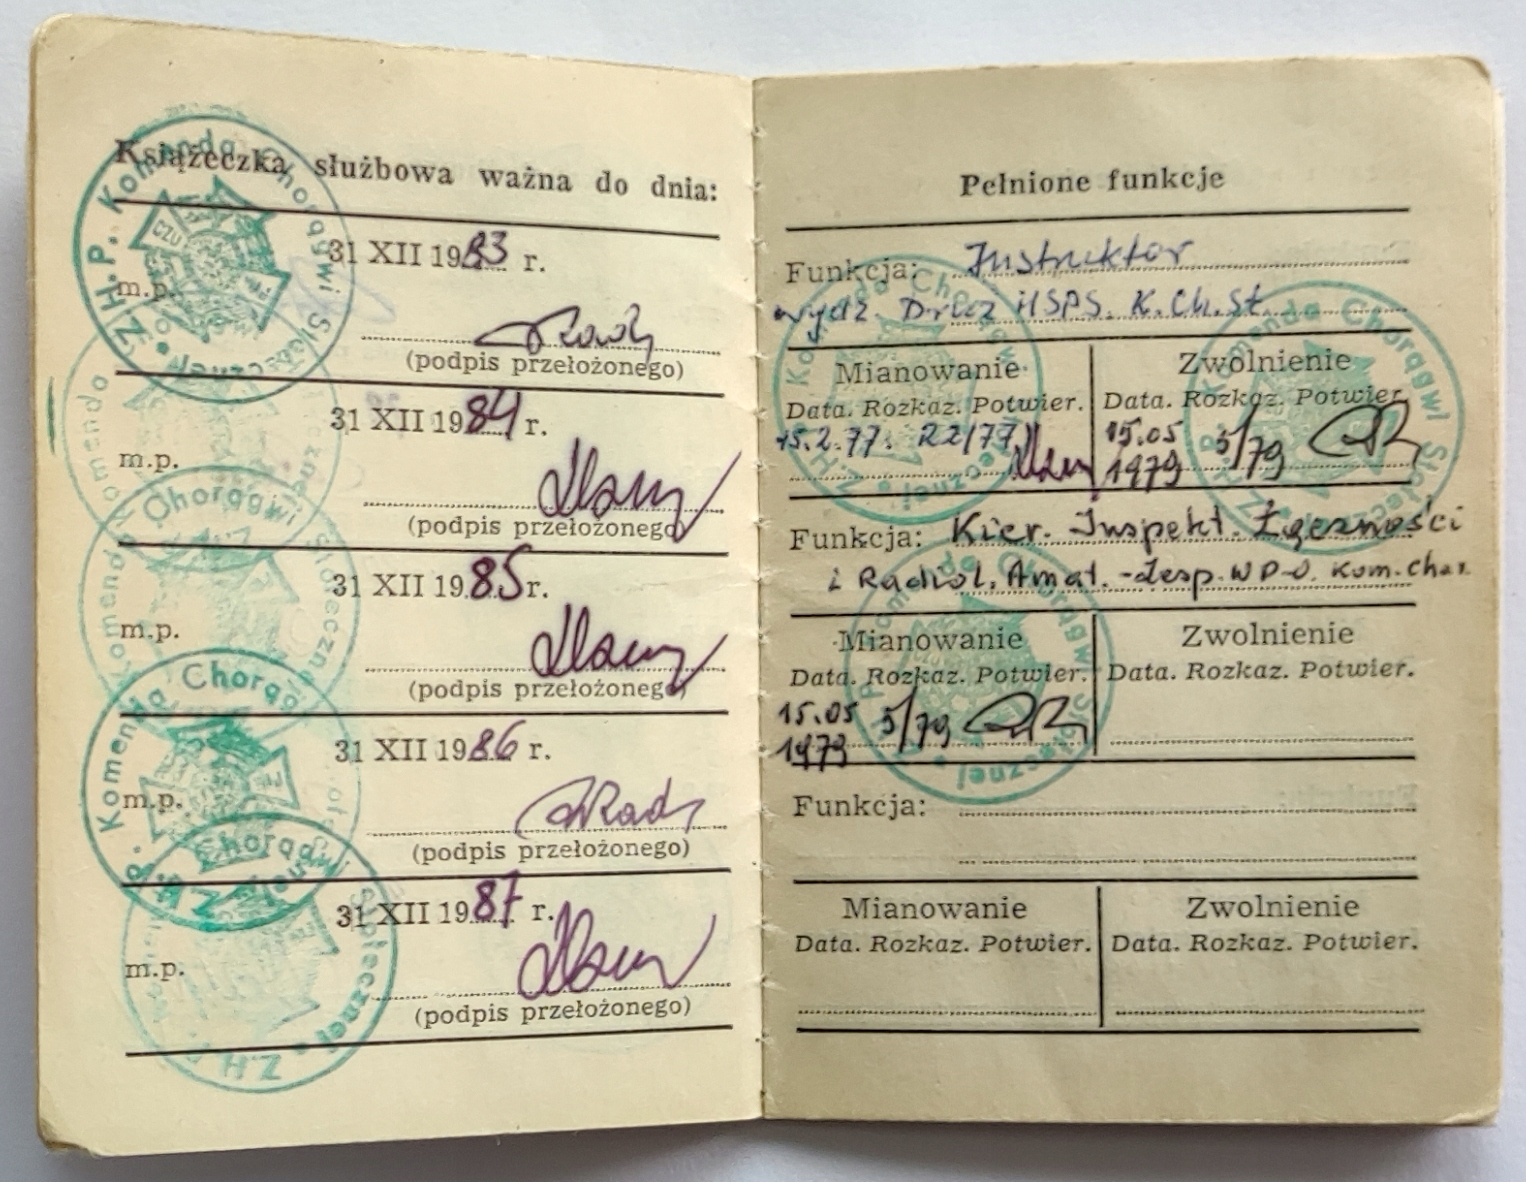 Książeczka służbowa ważna do dnia:
31 XII 1983 r.
m.p.
(podpis przełożonego)
31 XII 1984 r.
m.p.
(podpis przełożonego)
31 XII 1985 r.
m.p.
(podpis przełożonego)
31 XII 1986 r.
m.p.
(podpis przełożonego)
31 XII 1987 r.
m.p.
(podpis przełożonego)
Z.H.P. Komenda Chorągwi Stołecznej
Pełnione funkcje
Funkcja: Instruktor
wydz. HSPS. K.Ch.St
Mianowanie Zwolnienie
Data. Rozkaz. Potwier. Data. Rozkaz. Potwier.
15.2.77. R2/77 15.05 1979 5/79
Funkcja: Kier. Inspekt. Łączności
i Radiol. Amat. - Zesp. WP-O. Kom. Chor.
Mianowanie Zwolnienie
Data. Rozkaz. Potwier. Data. Rozkaz. Potwier.
15.05 1979 5/79
Funkcja:
Mianowanie Zwolnienie
Data. Rozkaz. Potwier. Data. Rozkaz. Potwier.